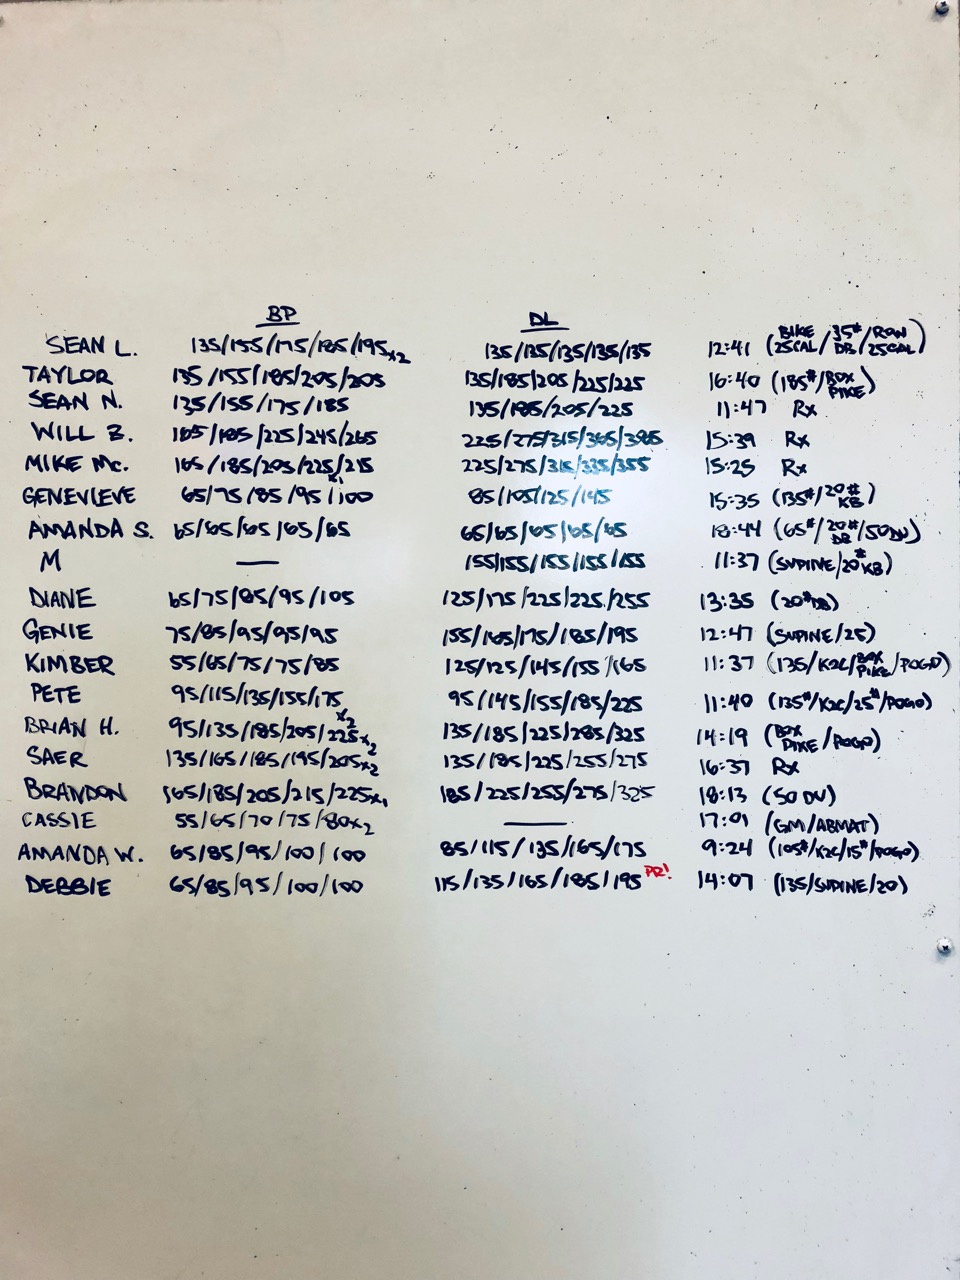 BP DL
SEAN L. 135/155/175/185/195x2 135/135/135/135/135 12:41 (BIKE 25CAL/35# DB/ROW 25CAL)
TAYLOR 135/155/185/205/205 135/185/205/225/225 16:40 (185#/BOX PIKE)
SEAN N. 135/155/175/185 135/185/205/225 11:47 Rx
WILL B. 165/185/225/245/265 225/275/315/365/385 15:39 Rx
MIKE MC. 165/185/205/225x1/215 225/275/315/335/355 15:25 Rx
GENEVIEVE 65/75/85/95/100 85/105/125/145 15:35 (135#/20# KB)
AMANDA S. 65/65/65/65/65 65/65/65/65/65 18:44 (65#/20# DB/50DU)
M — 155/155/155/155/155 11:37 (SUPINE/20# KB)
DIANE 65/75/85/95/105 125/175/225/225/255 13:35 (20# DB)
GENIE 75/85/95/95/95 155/165/175/185/195 12:47 (SUPINE/25)
KIMBER 55/65/75/75/85 125/125/145/155/165 11:37 (135/K2C/BOX PIKE/POGO)
PETE 95/115/135/155/175x2 95/145/155/185/225 11:40 (135#/K2C/25#/POGO)
BRIAN H. 95/135/185/205/225x2 135/185/225/285/325 14:19 (BOX PIKE/POGO)
SAER 135/165/185/195/205x2 135/185/225/255/275 16:37 Rx
BRANDON 165/185/205/215/225x1 185/225/255/275/325 18:13 (50 DU)
CASSIE 55/65/70/75/80x2 — 17:01 (GM/ABMAT)
AMANDA W. 65/85/95/100/100 85/115/135/165/175 9:24 (105#/K2C/15#/POGO)
DEBBIE 65/85/95/100/100 115/135/165/185/195 PR! 14:07 (135/SUPINE/20)